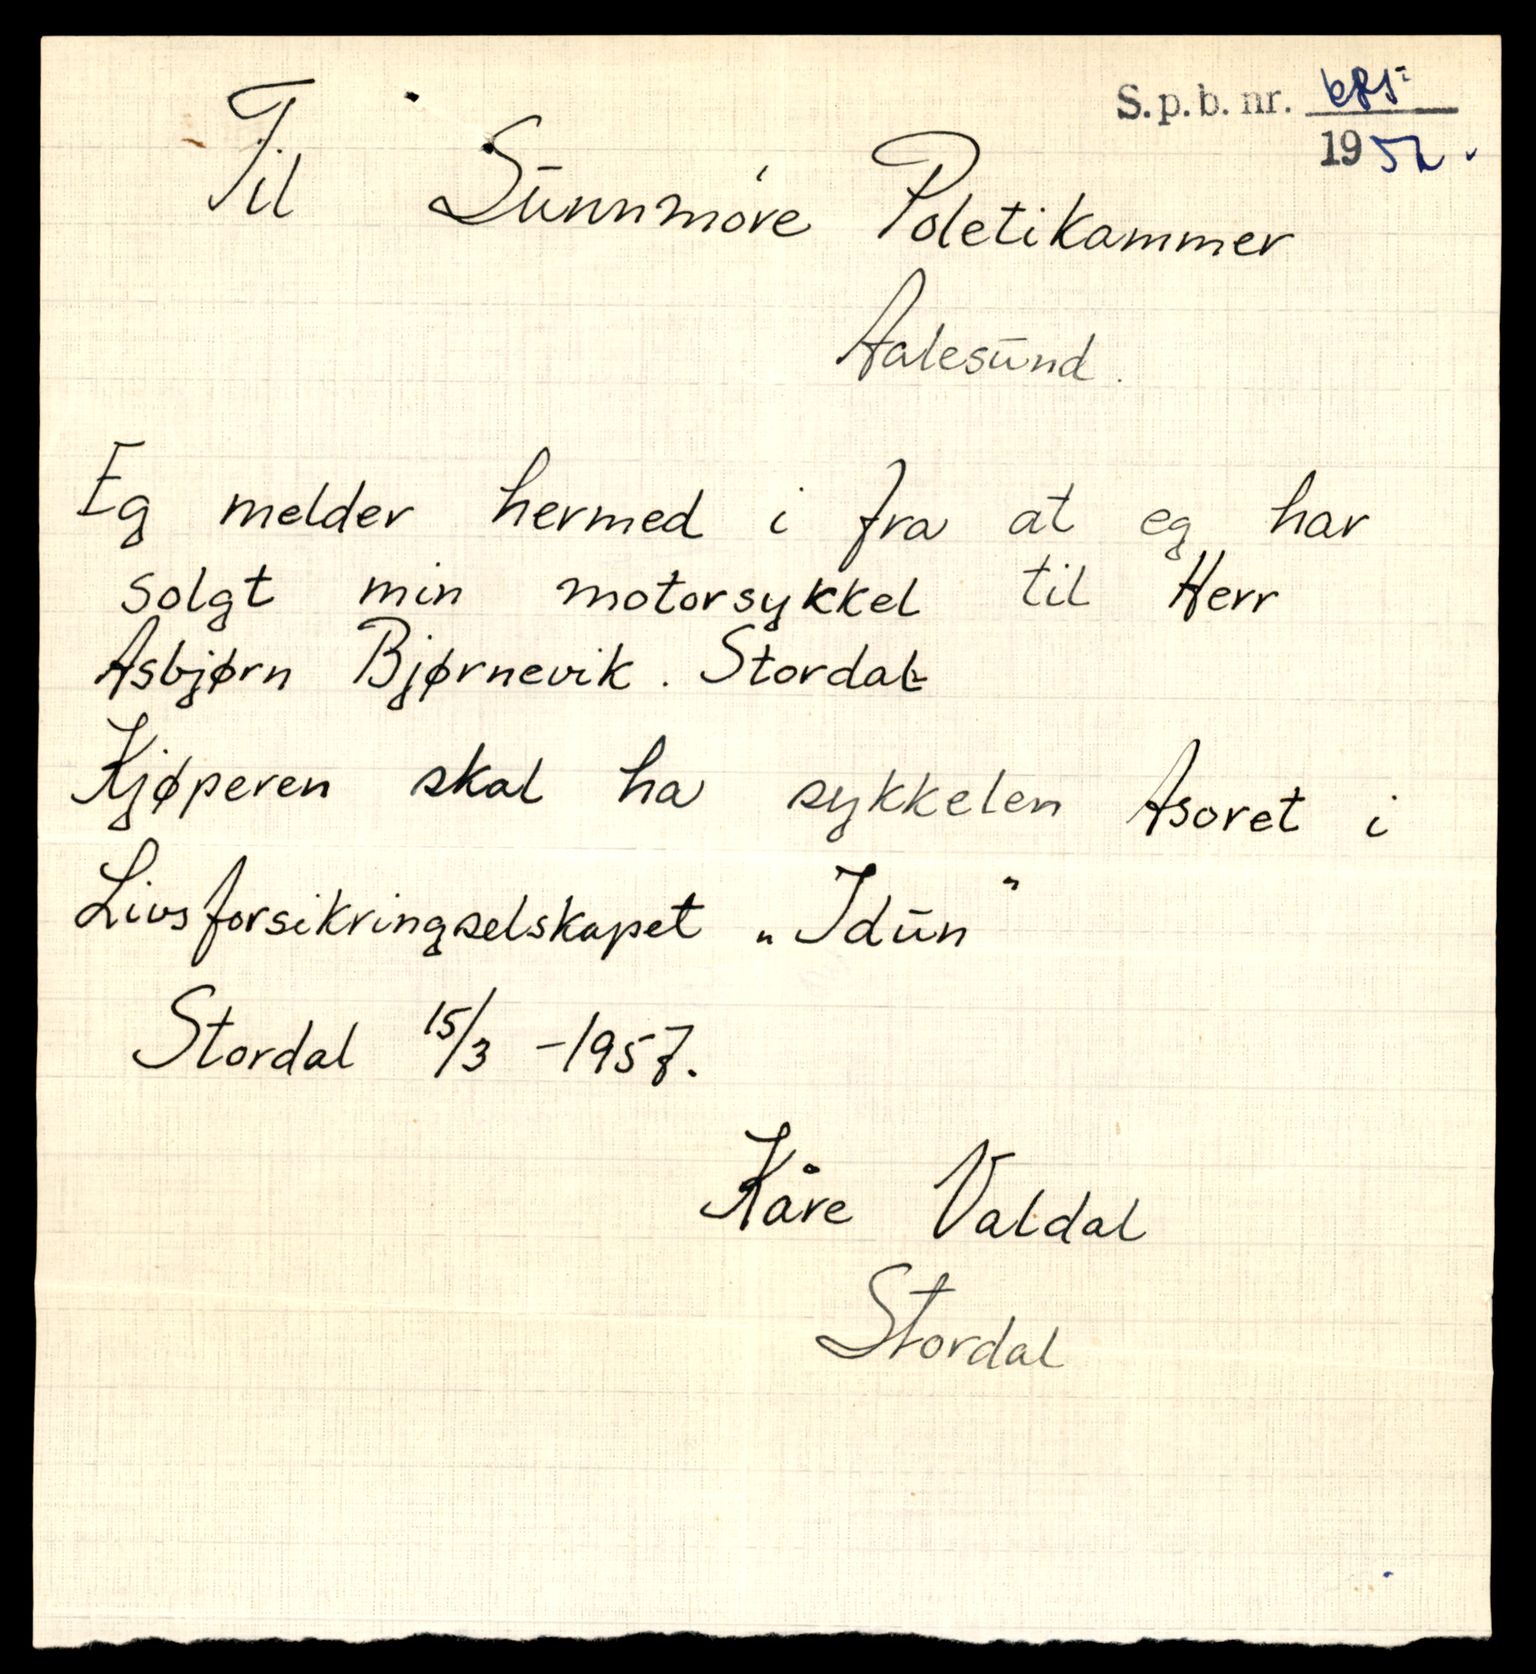 S.p.b. nr.
1957.
Til Sunnmóre Poletikammer
Aalesund.
Eg melder hermed i fra at eg har
solgt min motorsykkel til Herr
Asbjørn Bjørnevik. Stordal
Kjøperen skal ha sykkelen Asoret i
Livsforsikringselskapet „Idun"
Stordal 15/3 -1957.
Kåre Valdal
Stordal